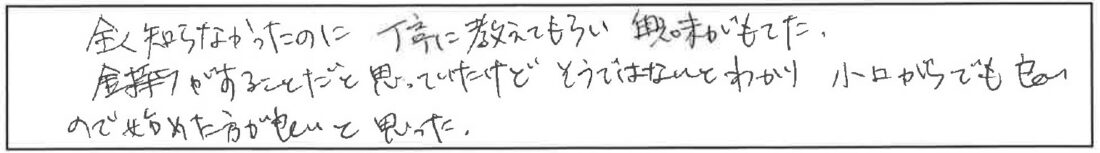 全く知らなかったのに 丁寧に教えてもらい 興味がもてた。
金持ちがすることだと思っていたけど そうではないとわかり 小口からでも良い
ので始めた方が良いと思った。